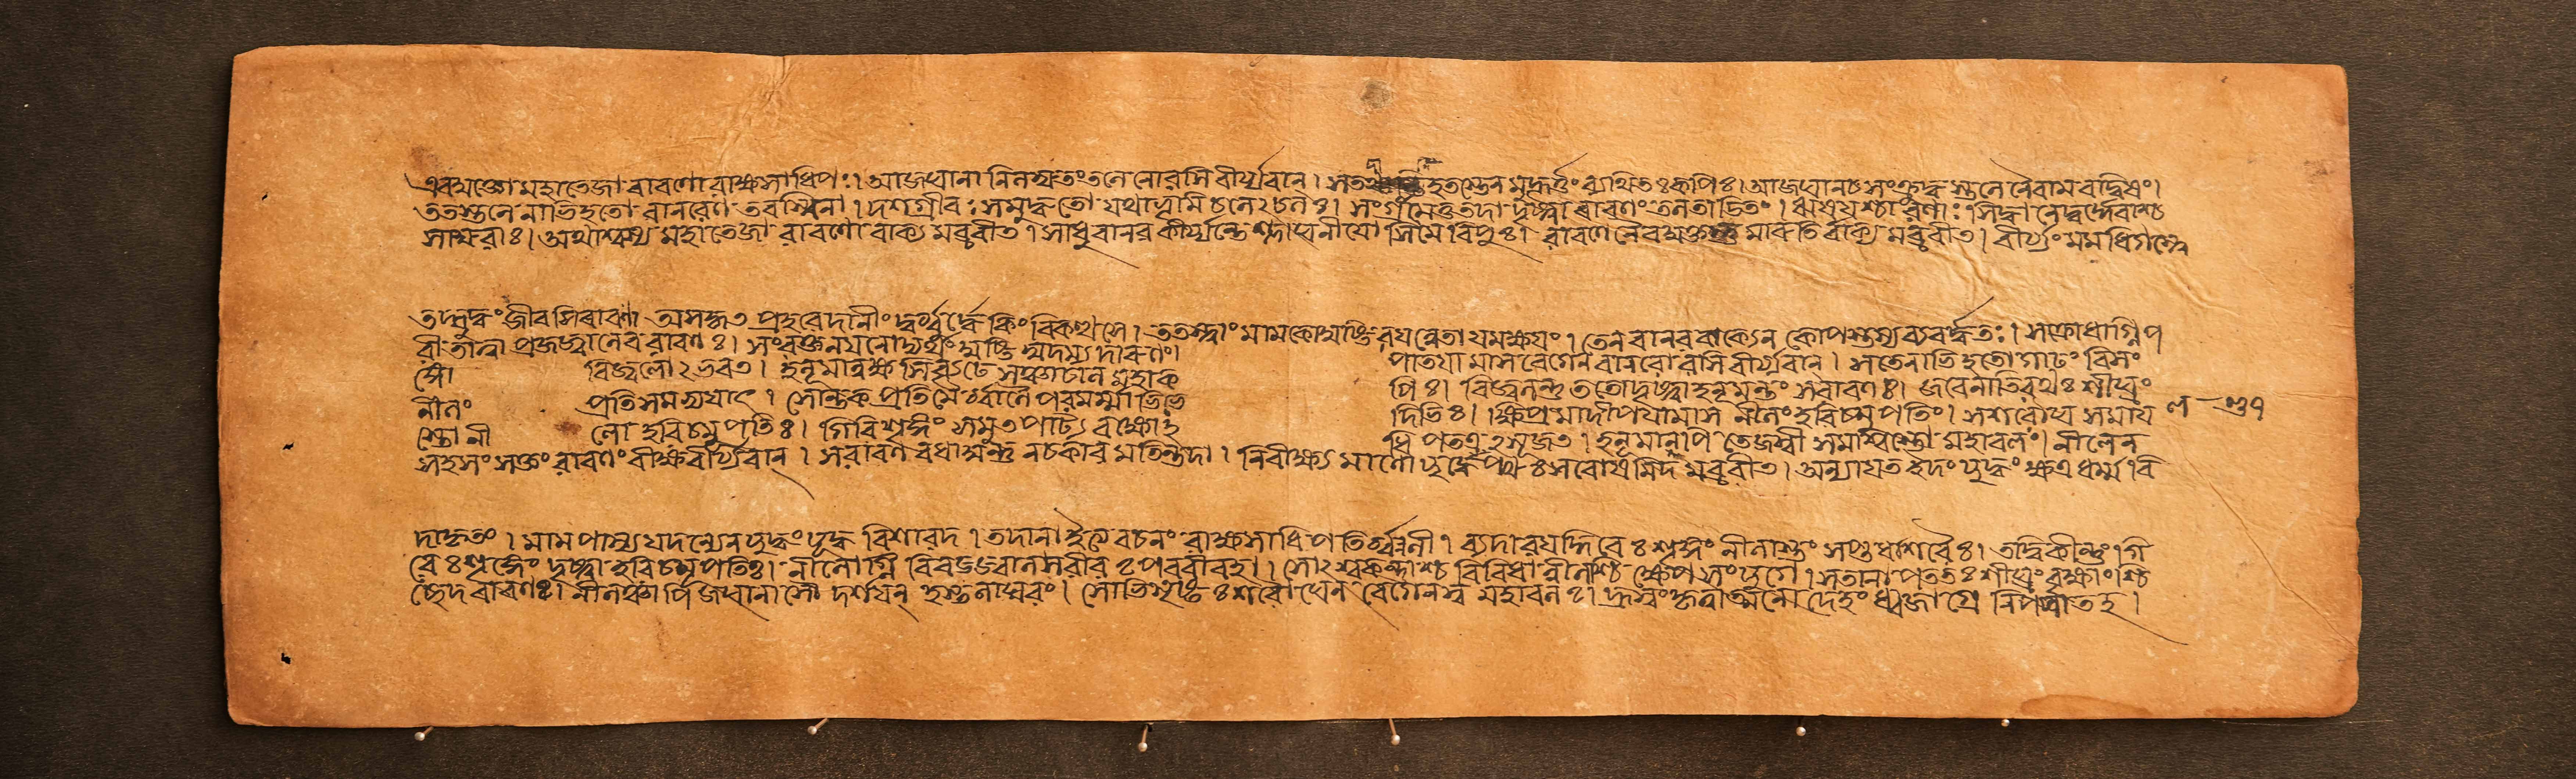 এবমুক্তো মহাতেজা রাবণো রাক্ষসাধিপঃ। আজঘানানিলসুতং তলেনোরসি বীর্য্যবান। স তলাভিহতস্তেন মুহুর্মুহুঃ ব্যথিতঃ কপিঃ। আজঘান চ সংক্রুদ্ধস্তলেনৈবামরদ্বিষং।
ততস্তলেনাভিহতো বানরেণ তরস্বিনা। দশগ্রীবঃ সমুদ্ধতো যথা ভূমিচলেঽচলঃ। সংগ্রামে তু তদা দৃষ্ট্বা রাবণং তলতাড়িতং। ঋষয়শ্চারণাঃ সিদ্ধা নেদুর্দ্দেবাশ্চ
সাসুরাঃ। অথাশ্বস্য মহাতেজা রাবণো বাক্যমব্রুবীত। সাধু বানর বীর্য্যন্তে শ্লাঘনীয়োসি মে রিপুঃ। রাবণেনৈবমুক্তস্তু মারুতির্বাক্যমব্রুবীত। বীর্য্যং মম ধিগস্তু
তদ্যুদ্ধং জীবসি রাবণ। অসকৃত প্রহরেদানীং দুর্ব্বুদ্ধে কিং বিকত্থসে। ততস্ত্বাং মামকো মুষ্টির্নয়ন্নেতা যমক্ষয়ং। তেন বানরবাক্যেন কোপস্তস্য ব্যবর্দ্ধতঃ। সক্রোধাগ্নিপ
রীতাত্মা প্রজজ্বালেব রাবণঃ। সংরক্তনয়নো মুষ্টিমুদ্যম্য দারুণং। পাতয়ামাস বেগেন বানরোরসি বীর্য্যবান। স তেনাভিহতো গাঢং বিসং
জ্ঞো বিহ্বলোঽভবত। হনূমান্ মহাক পিঃ। বিহ্বলন্তু ততো দৃষ্ট্বা হনুমন্তং স রাবণঃ। জবেনাতিরথঃ শীঘ্রং
নীলং প্রতি সমভ্যয়াৎ। পরমর্ম্মাভিভে দিভিঃ। ক্ষিপ্রমাদীপয়ামাস নীলং হরিচমূপতিং। স শরৌঘ সমায়
স্তো নী লো হরিচমূপতিঃ। গিরিশৃঙ্গং সমুতপাট্য রক্ষো ধিপতএঽসৃজত। হনূমানপি তেজস্বী সমাশ্বস্তো মহাবলং। নীলেন
সহ সংসক্তং রাবণং বীক্ষ্য বীর্য্যবান্। স রাবণবধাশন্তু ন চকার মতিন্তদা। নিরীক্ষ্যমাণো যুদ্ধেপ্সুঃ সরোষমিদমব্রুবীত। অন্যায়ত ইদং যুদ্ধং ক্ষএধর্ম্মবি
দাহৃতং। মামপাস্য যদন্যেন যুদ্ধং যুদ্ধবিশারদ। তদানাদৃত্য বচনং রাক্ষসাধিপতির্ব্বলী। ব্যদারয়দ্গিরেঃ শৃঙ্গং নীলাস্তং সপ্তধা শরৈঃ। তদ্বিকীর্ণং গি
রেঃ শৃঙ্গং দৃষ্ট্বা হরিচমূপতিঃ। কালাগ্নিরিব জজ্বাল পরবীরহা। সোঽশ্বকর্ণাশ্চ বিবিধান্ চিক্ষেপ সংযুগে। স তানাপততঃ শীঘ্রং বৃক্ষাংশ্চি
চ্ছেদ রাবণঃ। নীলঞ্চাপি জঘানাসৌ দর্শয়ন্ হস্তলাঘবং। সোভিবৃষ্টঃ শরৌঘেন বেগেন সুমহাবলঃ। হ্রস্বং কৃত্বাত্মনো দেহং ধ্বজাগ্রে নিপপাত হ।